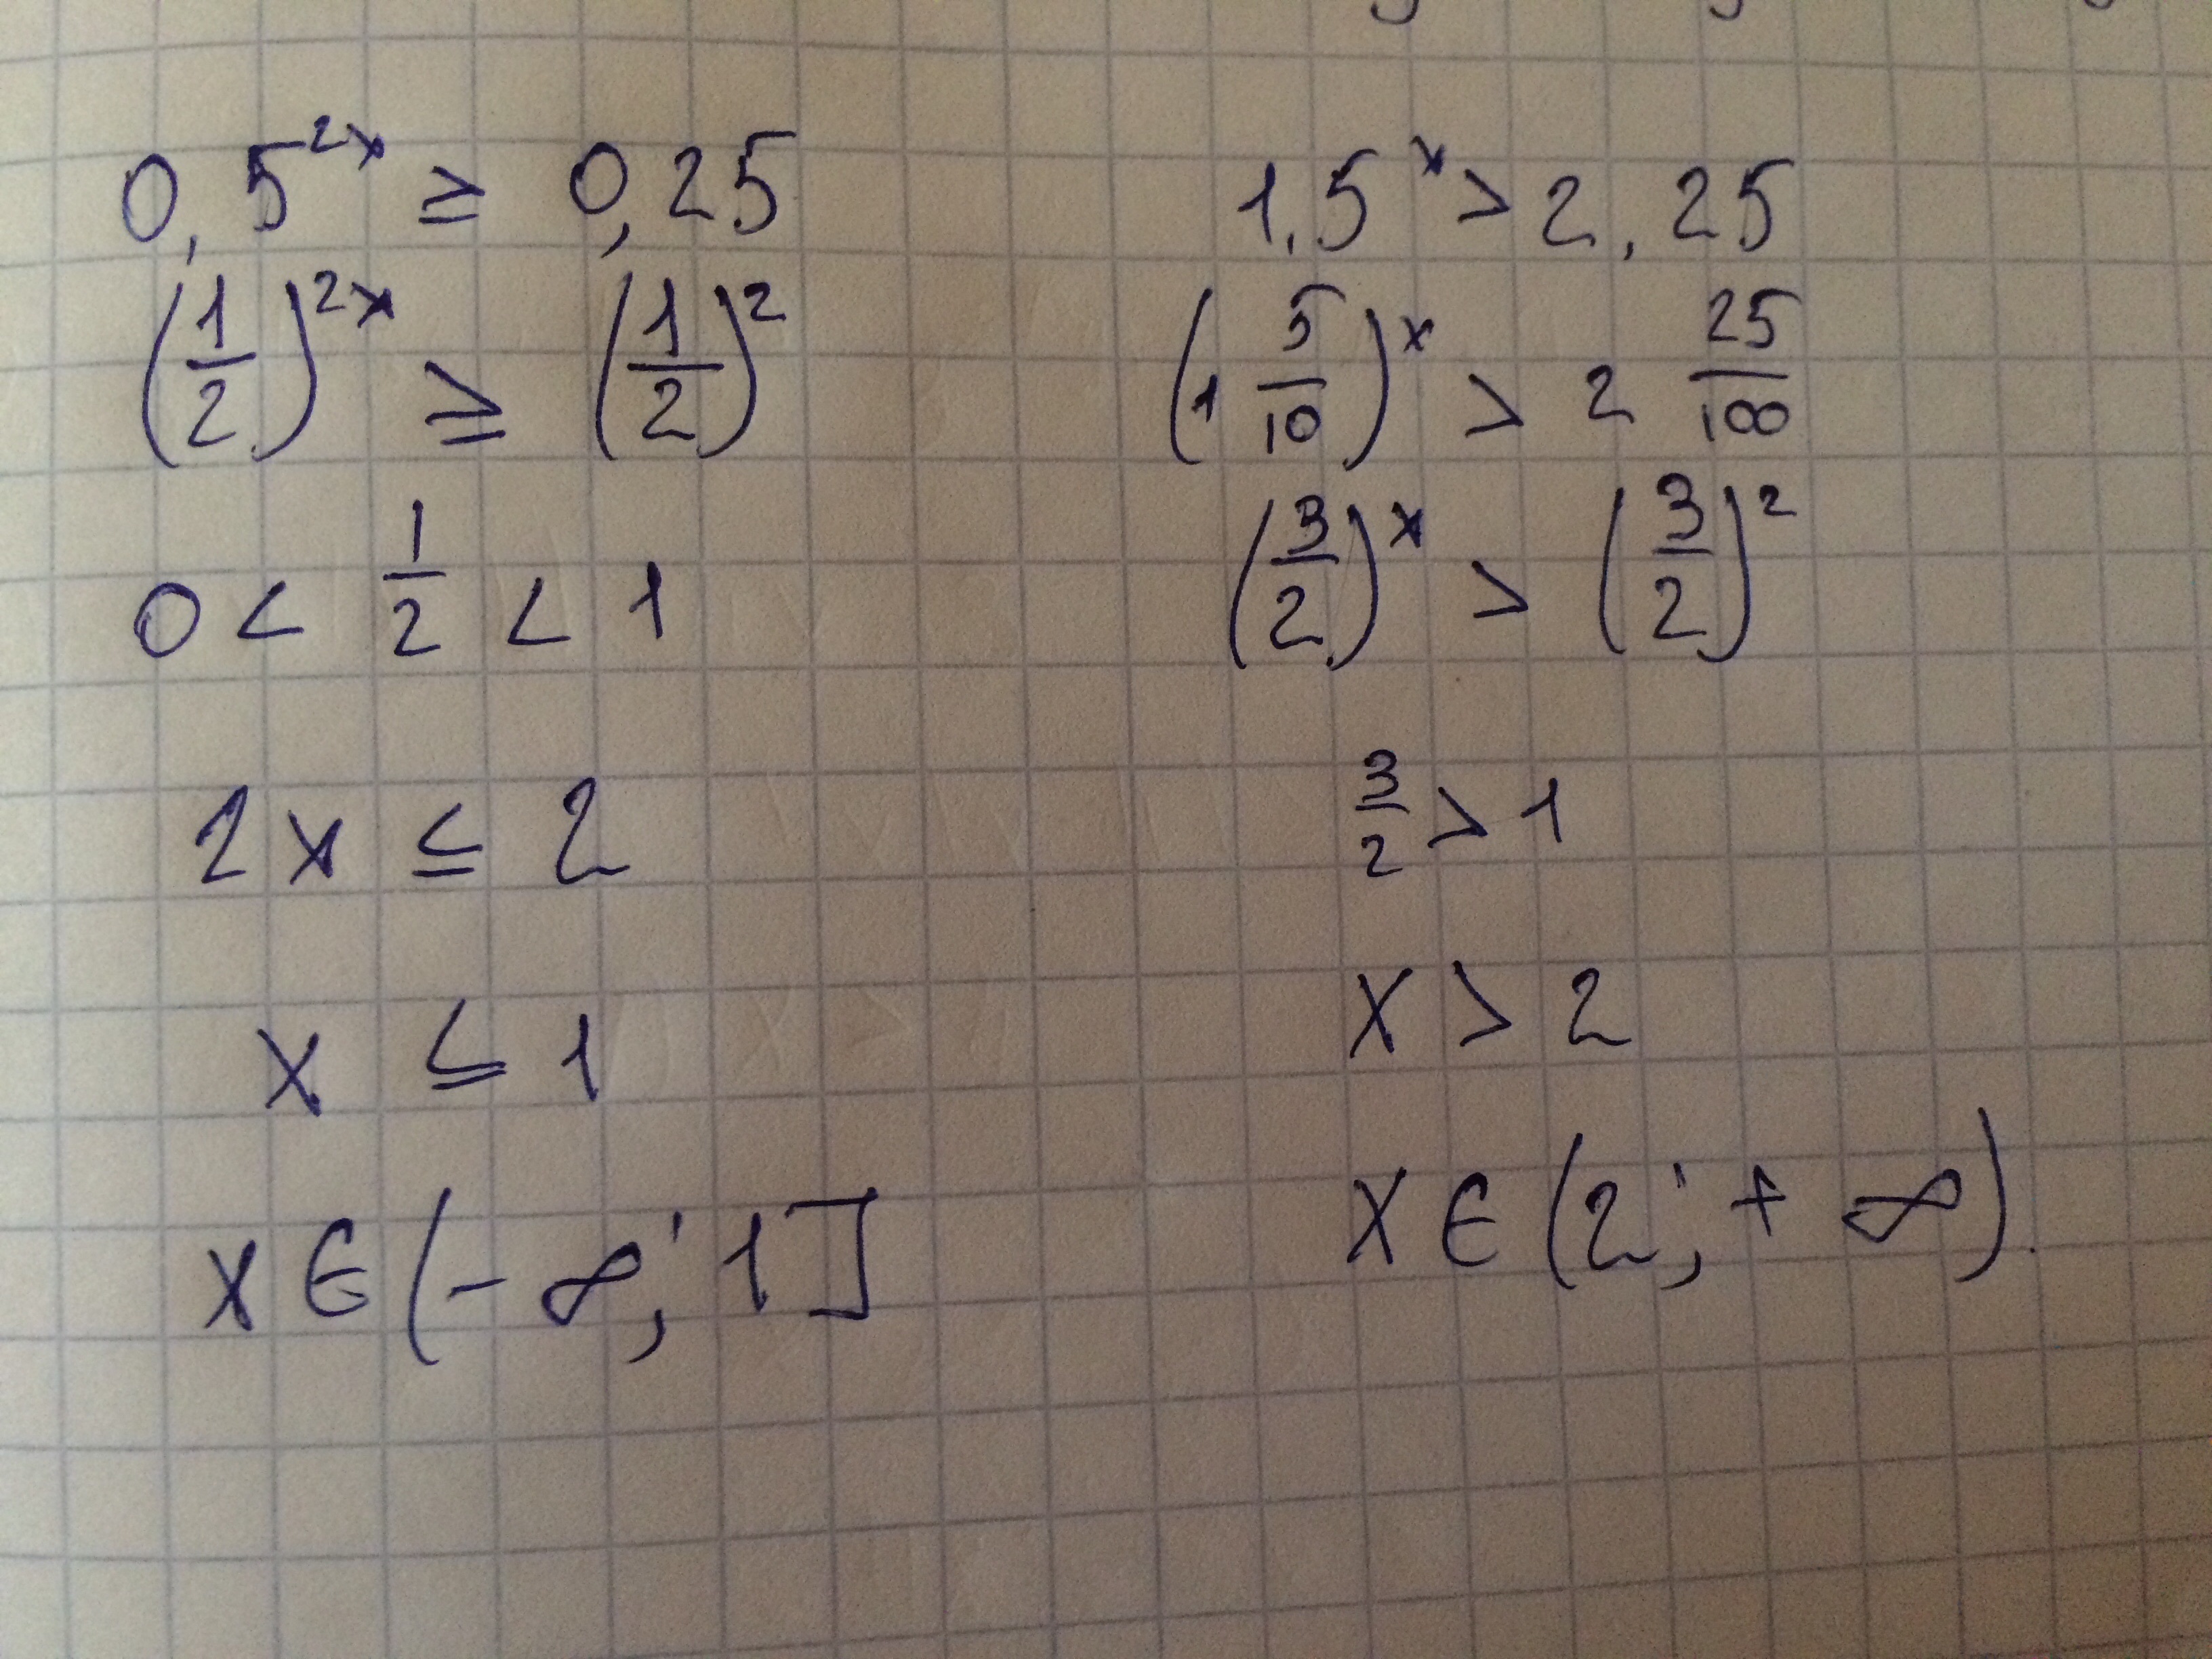 0,5^{2x} ≥ 0,25
(1/2)^{2x} ≥ (1/2)^2
0 < 1/2 < 1
2x ≤ 2
x ≤ 1
x ∈ (-∞; 1]
1,5^x > 2,25
(1 5/10)^x > 2 25/100
(3/2)^x > (3/2)^2
3/2 > 1
x > 2
x ∈ (2; +∞).